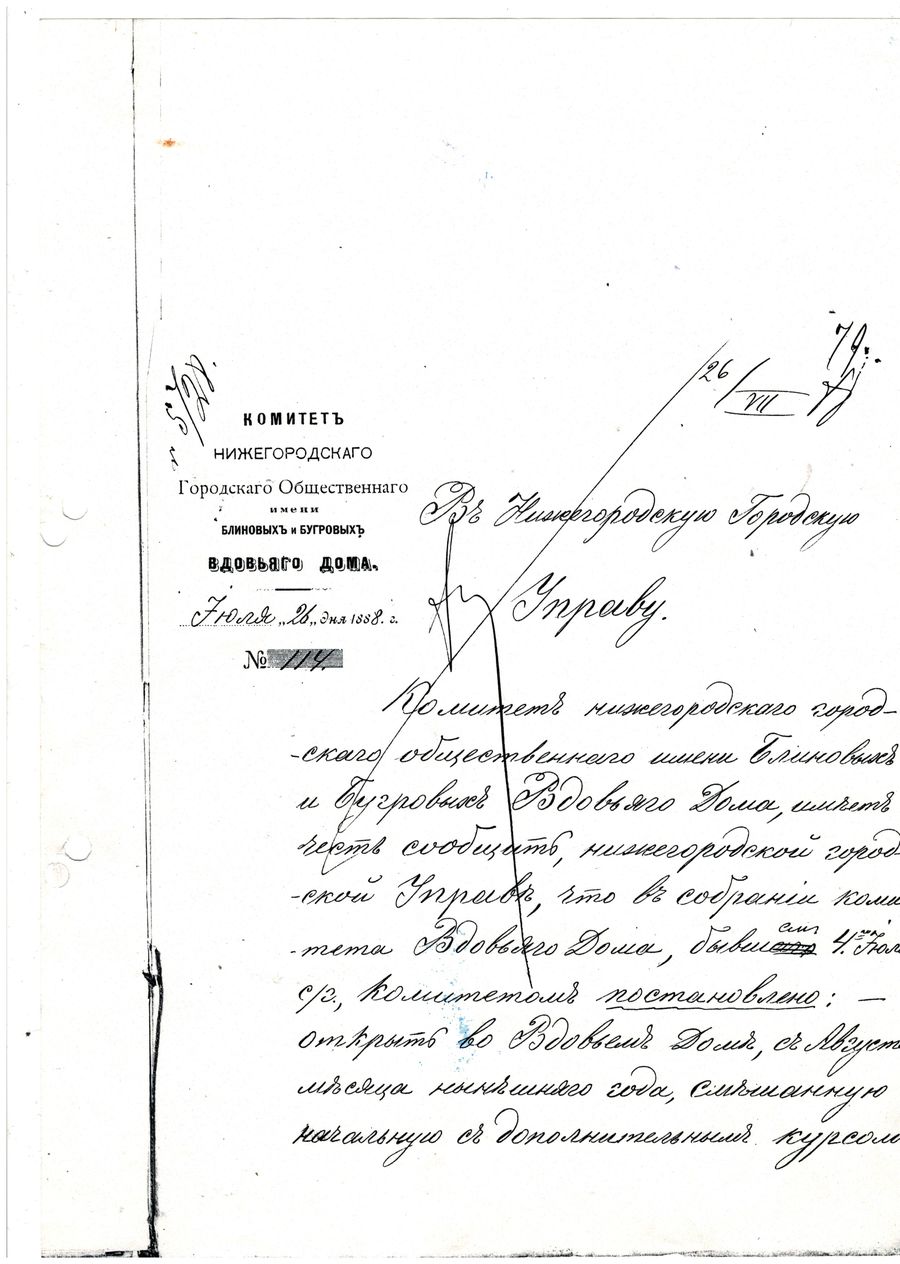 79.
26/VII
КОМИТЕТЪ
НИЖЕГОРОДСКАГО
Городскаго Общественнаго
имени
БЛИНОВЫХЪ и БУГРОВЫХЪ
ВДОВЬЯГО ДОМА.
Іюля „26„ дня 1888. г.
№ 114.
Въ Нижегородскую Городскую
Управу.
Комитетъ нижегородскаго город-
-скаго общественнаго имени Блиновыхъ
и Бугровыхъ Вдовьяго Дома, имѣетъ
честь сообщить, нижегородской город-
-ской Управѣ, что въ собраніи коми
-тета Вдовьяго Дома, бывшемъ 4го Іюл
с/г., Комитетомъ постановлено: —
открыть во Вдовьемъ Домѣ, съ Август
мѣсяца нынѣшняго года, смѣшанную
начальную съ дополнительнымъ курсом